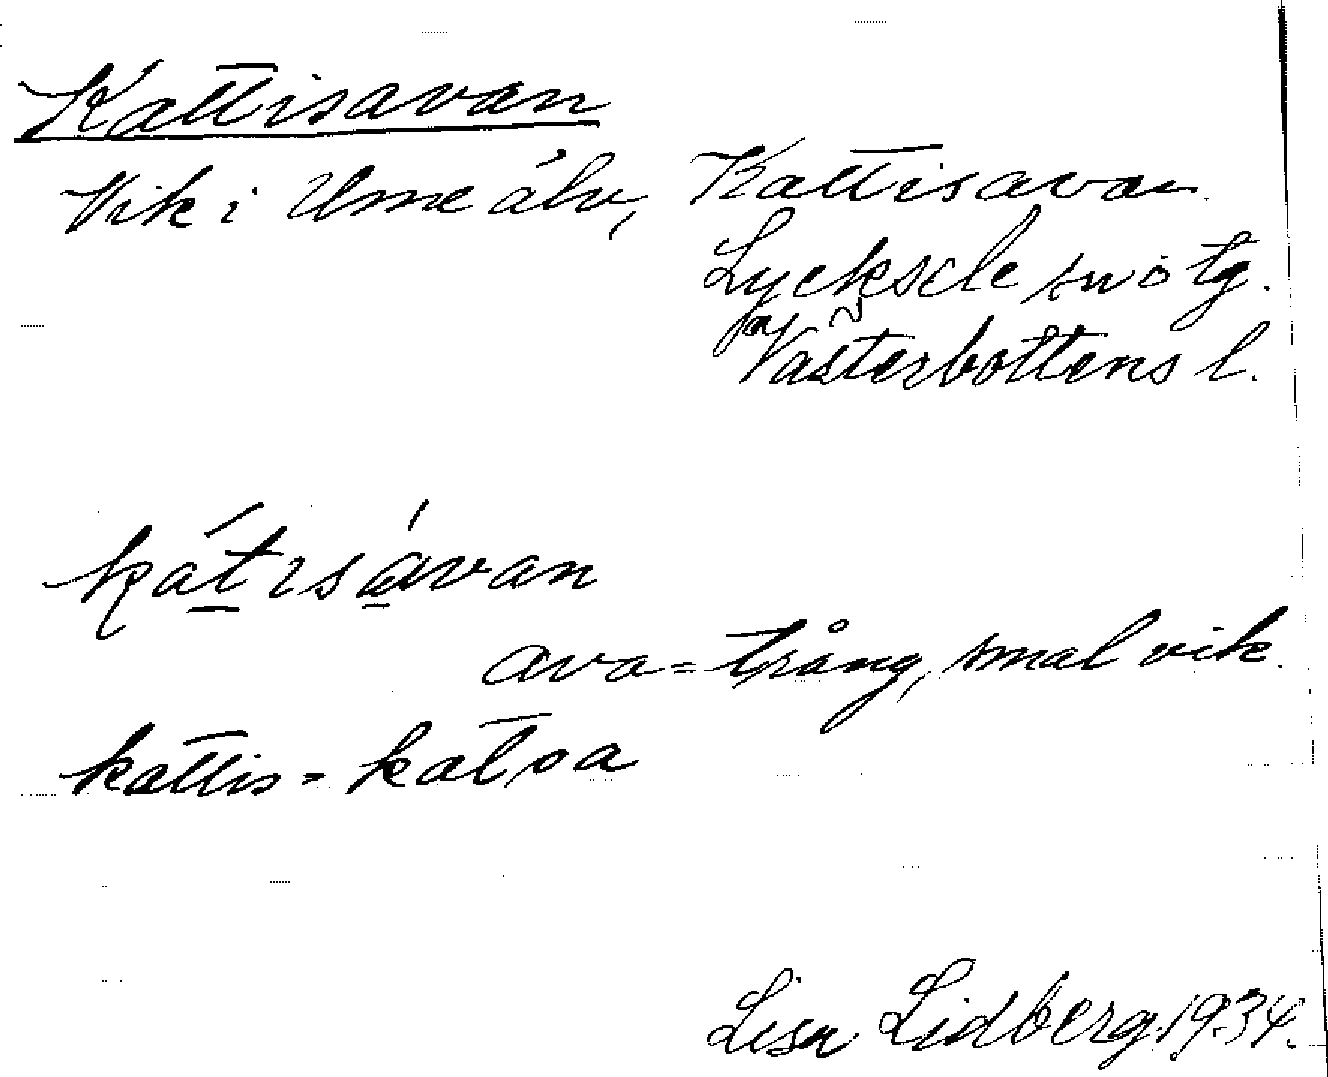 Kattisavan
Vik i Ume älv, Kattisavan
Lycksele sn o tg.
Västerbottens l.
kát̲ısá̲van
ava = trång, smal vik.
kattis = katsa
Lisa Lidberg 1934.